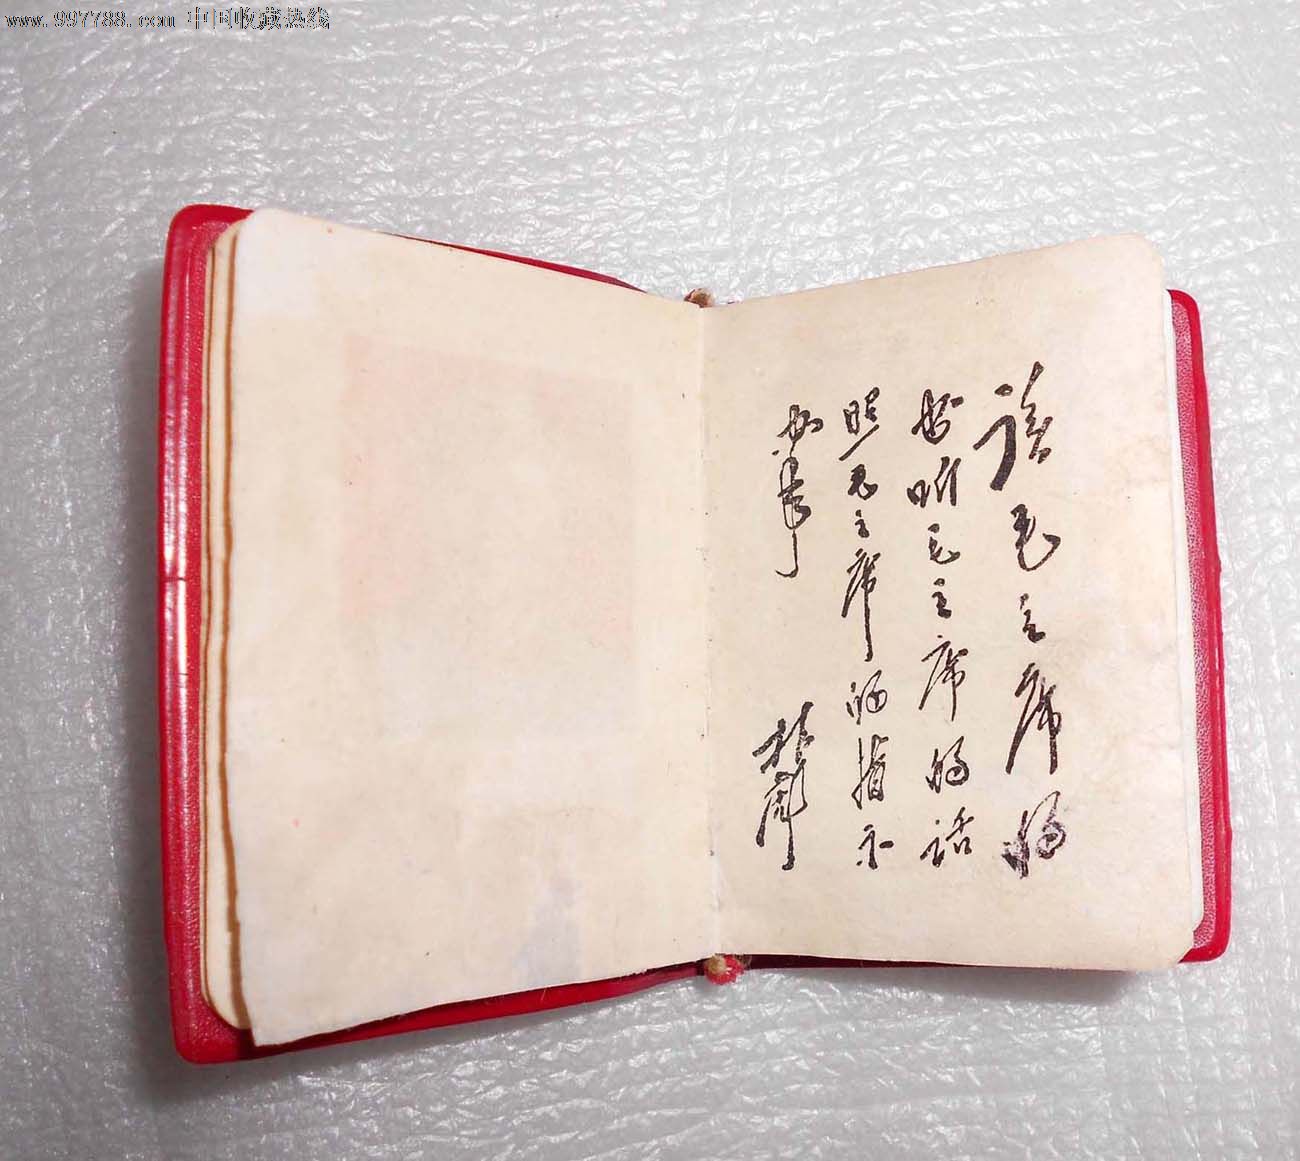 www.997788.com 中国收藏热线
读毛主席的
书听毛主席的话
照毛主席的指示
办事
林彪